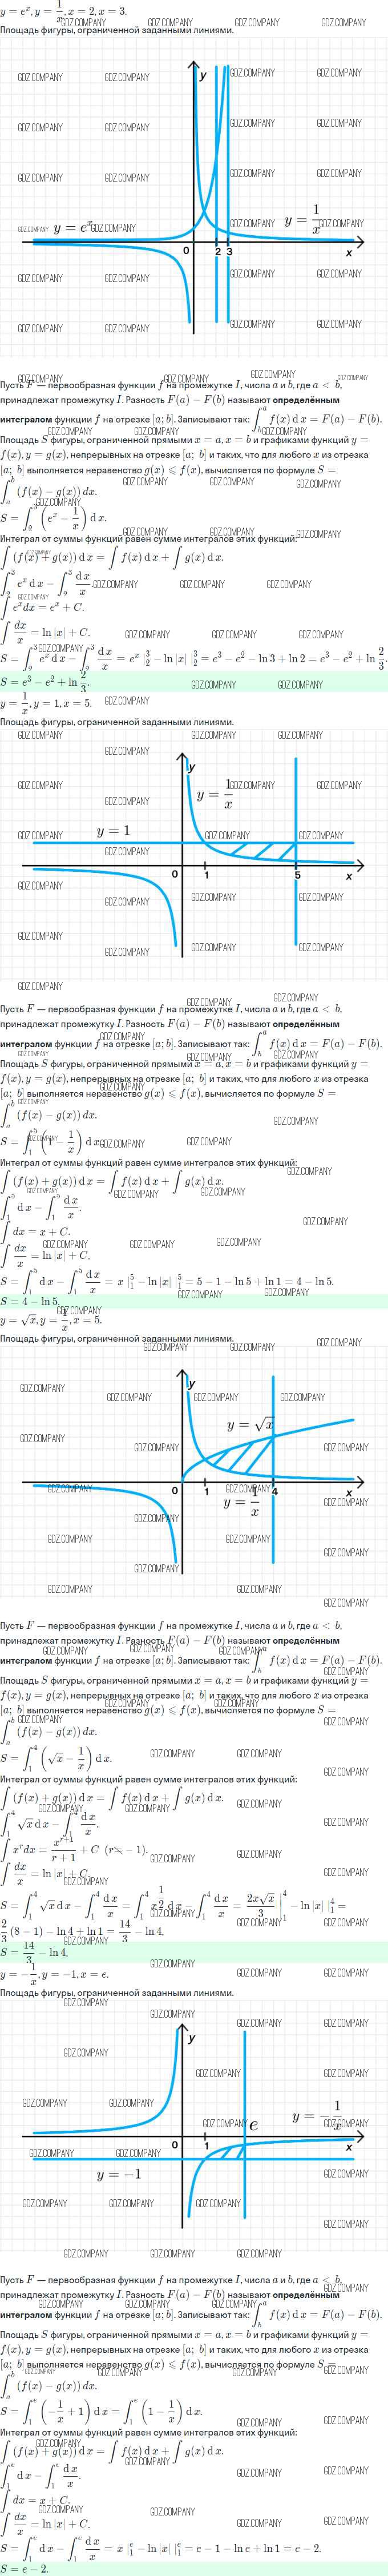 y = e^x, y = 1/x, x = 2, x = 3.
Площадь фигуры, ограниченной заданными линиями.
y
y = e^x
y = 1/x
0 2 3 x
Пусть F — первообразная функции f на промежутке I, числа a и b, где a < b,
принадлежат промежутку I. Разность F(a) − F(b) называют определённым
интегралом функции f на отрезке [a; b]. Записывают так: ∫_b^a f(x) dx = F(a) − F(b).
Площадь S фигуры, ограниченной прямыми x = a, x = b и графиками функций y =
f(x), y = g(x), непрерывных на отрезке [a; b] и таких, что для любого x из отрезка
[a; b] выполняется неравенство g(x) ⩽ f(x), вычисляется по формуле S =
∫_a^b (f(x) − g(x)) dx.
S = ∫_2^3 (e^x − 1/x) dx.
Интеграл от суммы функций равен сумме интегралов этих функций:
∫ (f(x) + g(x)) dx = ∫ f(x) dx + ∫ g(x) dx.
∫_2^3 e^x dx − ∫_2^3 dx/x.
∫ e^x dx = e^x + C.
∫ dx/x = ln|x| + C.
S = ∫_2^3 e^x dx − ∫_2^3 dx/x = e^x |_2^3 − ln|x| |_2^3 = e^3 − e^2 − ln 3 + ln 2 = e^3 − e^2 + ln 2/3.
S = e^3 − e^2 + ln 2/3.
y = 1/x, y = 1, x = 5.
Площадь фигуры, ограниченной заданными линиями.
y
y = 1/x
y = 1
0 1 5 x
Пусть F — первообразная функции f на промежутке I, числа a и b, где a < b,
принадлежат промежутку I. Разность F(a) − F(b) называют определённым
интегралом функции f на отрезке [a; b]. Записывают так: ∫_b^a f(x) dx = F(a) − F(b).
Площадь S фигуры, ограниченной прямыми x = a, x = b и графиками функций y =
f(x), y = g(x), непрерывных на отрезке [a; b] и таких, что для любого x из отрезка
[a; b] выполняется неравенство g(x) ⩽ f(x), вычисляется по формуле S =
∫_a^b (f(x) − g(x)) dx.
S = ∫_1^5 (1 − 1/x) dx.
Интеграл от суммы функций равен сумме интегралов этих функций:
∫ (f(x) + g(x)) dx = ∫ f(x) dx + ∫ g(x) dx.
∫_1^5 dx − ∫_1^5 dx/x.
∫ dx = x + C.
∫ dx/x = ln|x| + C.
S = ∫_1^5 dx − ∫_1^5 dx/x = x |_1^5 − ln|x| |_1^5 = 5 − 1 − ln 5 + ln 1 = 4 − ln 5.
S = 4 − ln 5.
y = √x, y = 1/x, x = 5.
Площадь фигуры, ограниченной заданными линиями.
y
y = √x
0 1 4 x
y = 1/x
Пусть F — первообразная функции f на промежутке I, числа a и b, где a < b,
принадлежат промежутку I. Разность F(a) − F(b) называют определённым
интегралом функции f на отрезке [a; b]. Записывают так: ∫_b^a f(x) dx = F(a) − F(b).
Площадь S фигуры, ограниченной прямыми x = a, x = b и графиками функций y =
f(x), y = g(x), непрерывных на отрезке [a; b] и таких, что для любого x из отрезка
[a; b] выполняется неравенство g(x) ⩽ f(x), вычисляется по формуле S =
∫_a^b (f(x) − g(x)) dx.
S = ∫_1^4 (√x − 1/x) dx.
Интеграл от суммы функций равен сумме интегралов этих функций:
∫ (f(x) + g(x)) dx = ∫ f(x) dx + ∫ g(x) dx.
∫_1^4 √x dx − ∫_1^4 dx/x.
∫ x^r dx = x^(r+1)/(r + 1) + C (r ≠ − 1).
∫ dx/x = ln|x| + C.
S = ∫_1^4 √x dx − ∫_1^4 dx/x = ∫_1^4 x^(1/2) dx − ∫_1^4 dx/x = 2x√x/3 |_1^4 − ln|x| |_1^4 =
2/3 (8 − 1) − ln 4 + ln 1 = 14/3 − ln 4.
S = 14/3 − ln 4.
y = −1/x, y = −1, x = e.
Площадь фигуры, ограниченной заданными линиями.
y
e
y = − 1/x
0 1 x
y = −1
Пусть F — первообразная функции f на промежутке I, числа a и b, где a < b,
принадлежат промежутку I. Разность F(a) − F(b) называют определённым
интегралом функции f на отрезке [a; b]. Записывают так: ∫_b^a f(x) dx = F(a) − F(b).
Площадь S фигуры, ограниченной прямыми x = a, x = b и графиками функций y =
f(x), y = g(x), непрерывных на отрезке [a; b] и таких, что для любого x из отрезка
[a; b] выполняется неравенство g(x) ⩽ f(x), вычисляется по формуле S =
∫_a^b (f(x) − g(x)) dx.
S = ∫_1^e (−1/x + 1) dx = ∫_1^e (1 − 1/x) dx.
Интеграл от суммы функций равен сумме интегралов этих функций:
∫ (f(x) + g(x)) dx = ∫ f(x) dx + ∫ g(x) dx.
∫_1^e dx − ∫_1^e dx/x.
∫ dx = x + C.
∫ dx/x = ln|x| + C.
S = ∫_1^e dx − ∫_1^e dx/x = x |_1^e − ln|x| |_1^e = e − 1 − ln e + ln 1 = e − 2.
S = e − 2.
GDZ.COMPANY